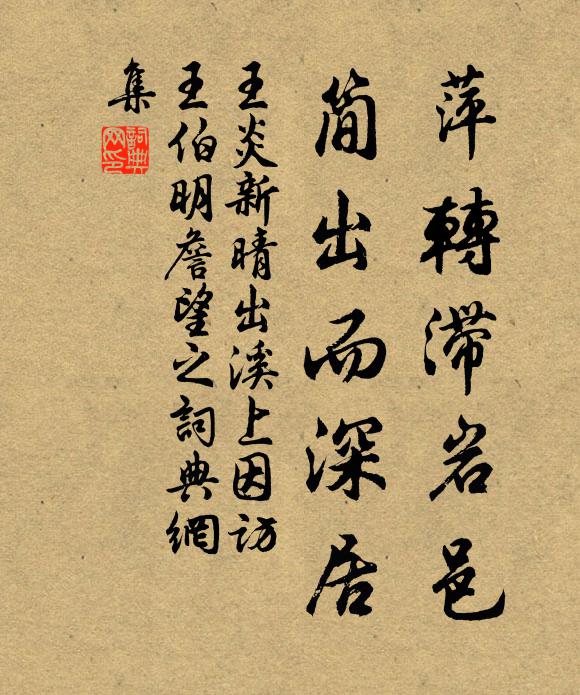 萍轉滯岩邑
简出而深居
王炎新晴出溪上因訪
王伯明詹望之詞典網
集
詞典
网印